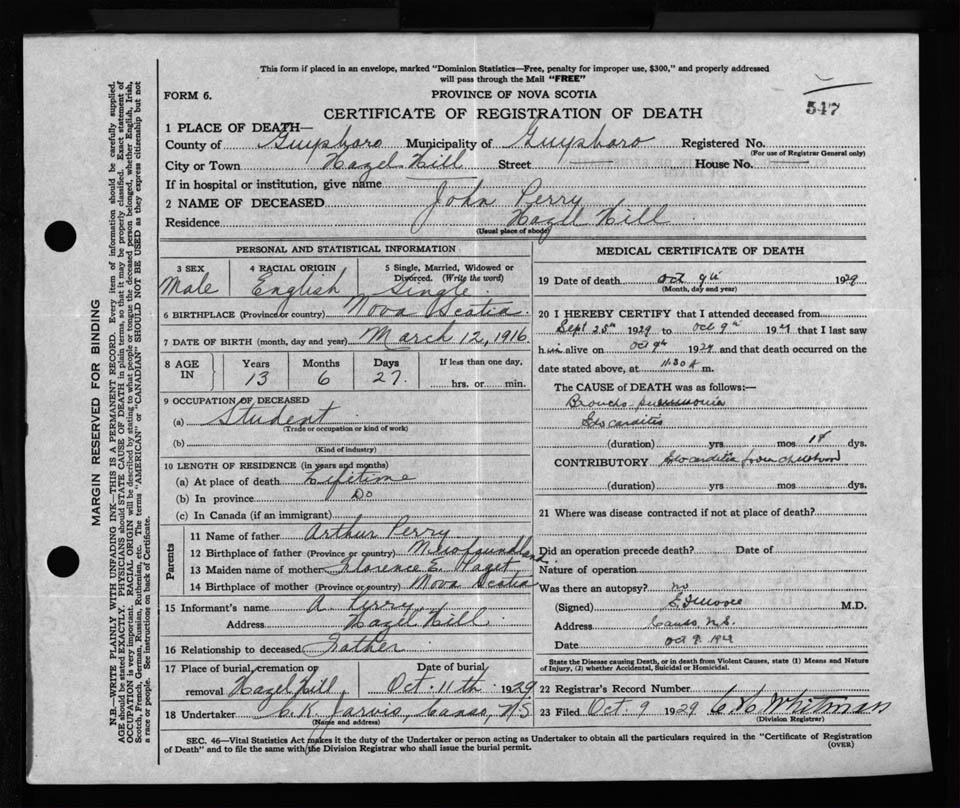 This form if placed in an envelope, marked "Dominion Statistics—Free, penalty for improper use, $300," and properly addressed
will pass through the Mail "FREE"
FORM 6.
PROVINCE OF NOVA SCOTIA
547
CERTIFICATE OF REGISTRATION OF DEATH
1 PLACE OF DEATH—
County of Guysboro Municipality of Guysboro Registered No.
(For use of Registrar General only)
City or Town Hazel Hill Street House No.
If in hospital or institution, give name
2 NAME OF DECEASED John Perry
Residence Hazel Hill
(Usual place of abode)
PERSONAL AND STATISTICAL INFORMATION
3 SEX 4 RACIAL ORIGIN 5 Single, Married, Widowed or Divorced. (Write the word)
Male English Single
6 BIRTHPLACE (Province or country) Nova Scotia
7 DATE OF BIRTH (month, day and year) March 12, 1916
8 AGE IN Years Months Days If less than one day,
13 6 27 hrs. or min.
9 OCCUPATION OF DECEASED
(a) Student
(Trade or occupation or kind of work)
(b)
(Kind of industry)
10 LENGTH OF RESIDENCE (in years and months)
(a) At place of death Lifetime
(b) In province Do
(c) In Canada (if an immigrant)
Parents
11 Name of father Arthur Perry
12 Birthplace of father (Province or country) Newfoundland
13 Maiden name of mother Florence E.
14 Birthplace of mother (Province or country) Nova Scotia
15 Informant's name A. Perry
Address Hazel Hill
16 Relationship to deceased Father
17 Place of burial, cremation or Date of burial
removal Hazel Hill, Oct. 11th 1929
18 Undertaker C. K. Jarvis, Canso, N.S
(Name and address)
MEDICAL CERTIFICATE OF DEATH
19 Date of death Oct 9th 1929
(Month, day and year)
20 I HEREBY CERTIFY that I attended deceased from
Sept 25th 1929 to Oct 9th 1929 that I last saw
him alive on Oct 9th 1929 and that death occurred on the
date stated above, at 11.30 A m.
The CAUSE of DEATH was as follows:—
Broncho-pneumonia
Endocarditis
(duration) yrs mos 14 dys.
CONTRIBUTORY Endocarditis from
(duration) yrs mos dys.
21 Where was disease contracted if not at place of death?
Did an operation precede death? Date of
Nature of operation
Was there an autopsy? no
(Signed) M.D.
Address Canso N.S.
Date Oct 9 1929
State the Disease causing Death, or in death from Violent Causes, state (1) Means and Nature
of Injury, (2) whether Accidental, Suicidal or Homicidal.
22 Registrar's Record Number
23 Filed Oct. 9 1929 Whitman
(Division Registrar)
SEC. 46—Vital Statistics Act makes it the duty of the Undertaker or person acting as Undertaker to obtain all the particulars required in the "Certificate of Registration
of Death" and to file the same with the Division Registrar who shall issue the burial permit.
(OVER)
MARGIN RESERVED FOR BINDING
N.B.—WRITE PLAINLY WITH UNFADING INK—THIS IS A PERMANENT RECORD. Every item of information should be carefully supplied.
AGE should be stated EXACTLY. PHYSICIANS should STATE CAUSE OF DEATH in plain terms, so that it may be properly classified. Exact statement of
OCCUPATION is very important. RACIAL ORIGIN will be described by stating to what people or tongue the deceased person belonged, whether English, Irish,
Scotch, French, German, Russian, Ruthenian, etc. The terms "AMERICAN" or "CANADIAN" SHOULD NOT BE USED as they express citizenship but not
a race or people. See instructions on back of Certificate.